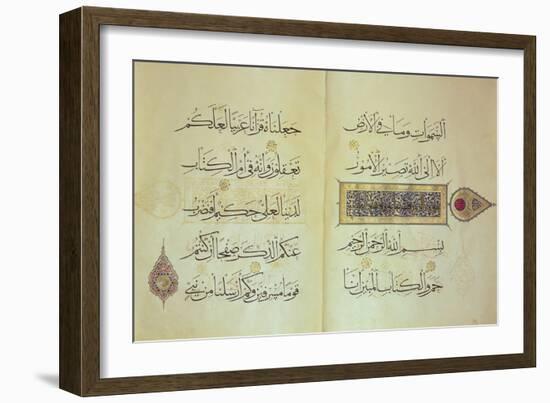 السموات وما في الأرض
ألا إلى الله تصير الأمور
بسم الله الرحمن الرحيم
حم والكتاب المبين إنا
جعلناه قرآنا عربيا لعلكم
تعقلون وإنه في أم الكتاب
لدينا لعلي حكيم أفنضرب
عنكم الذكر صفحا أن كنتم
قوما مسرفين وكم أرسلنا من نبي